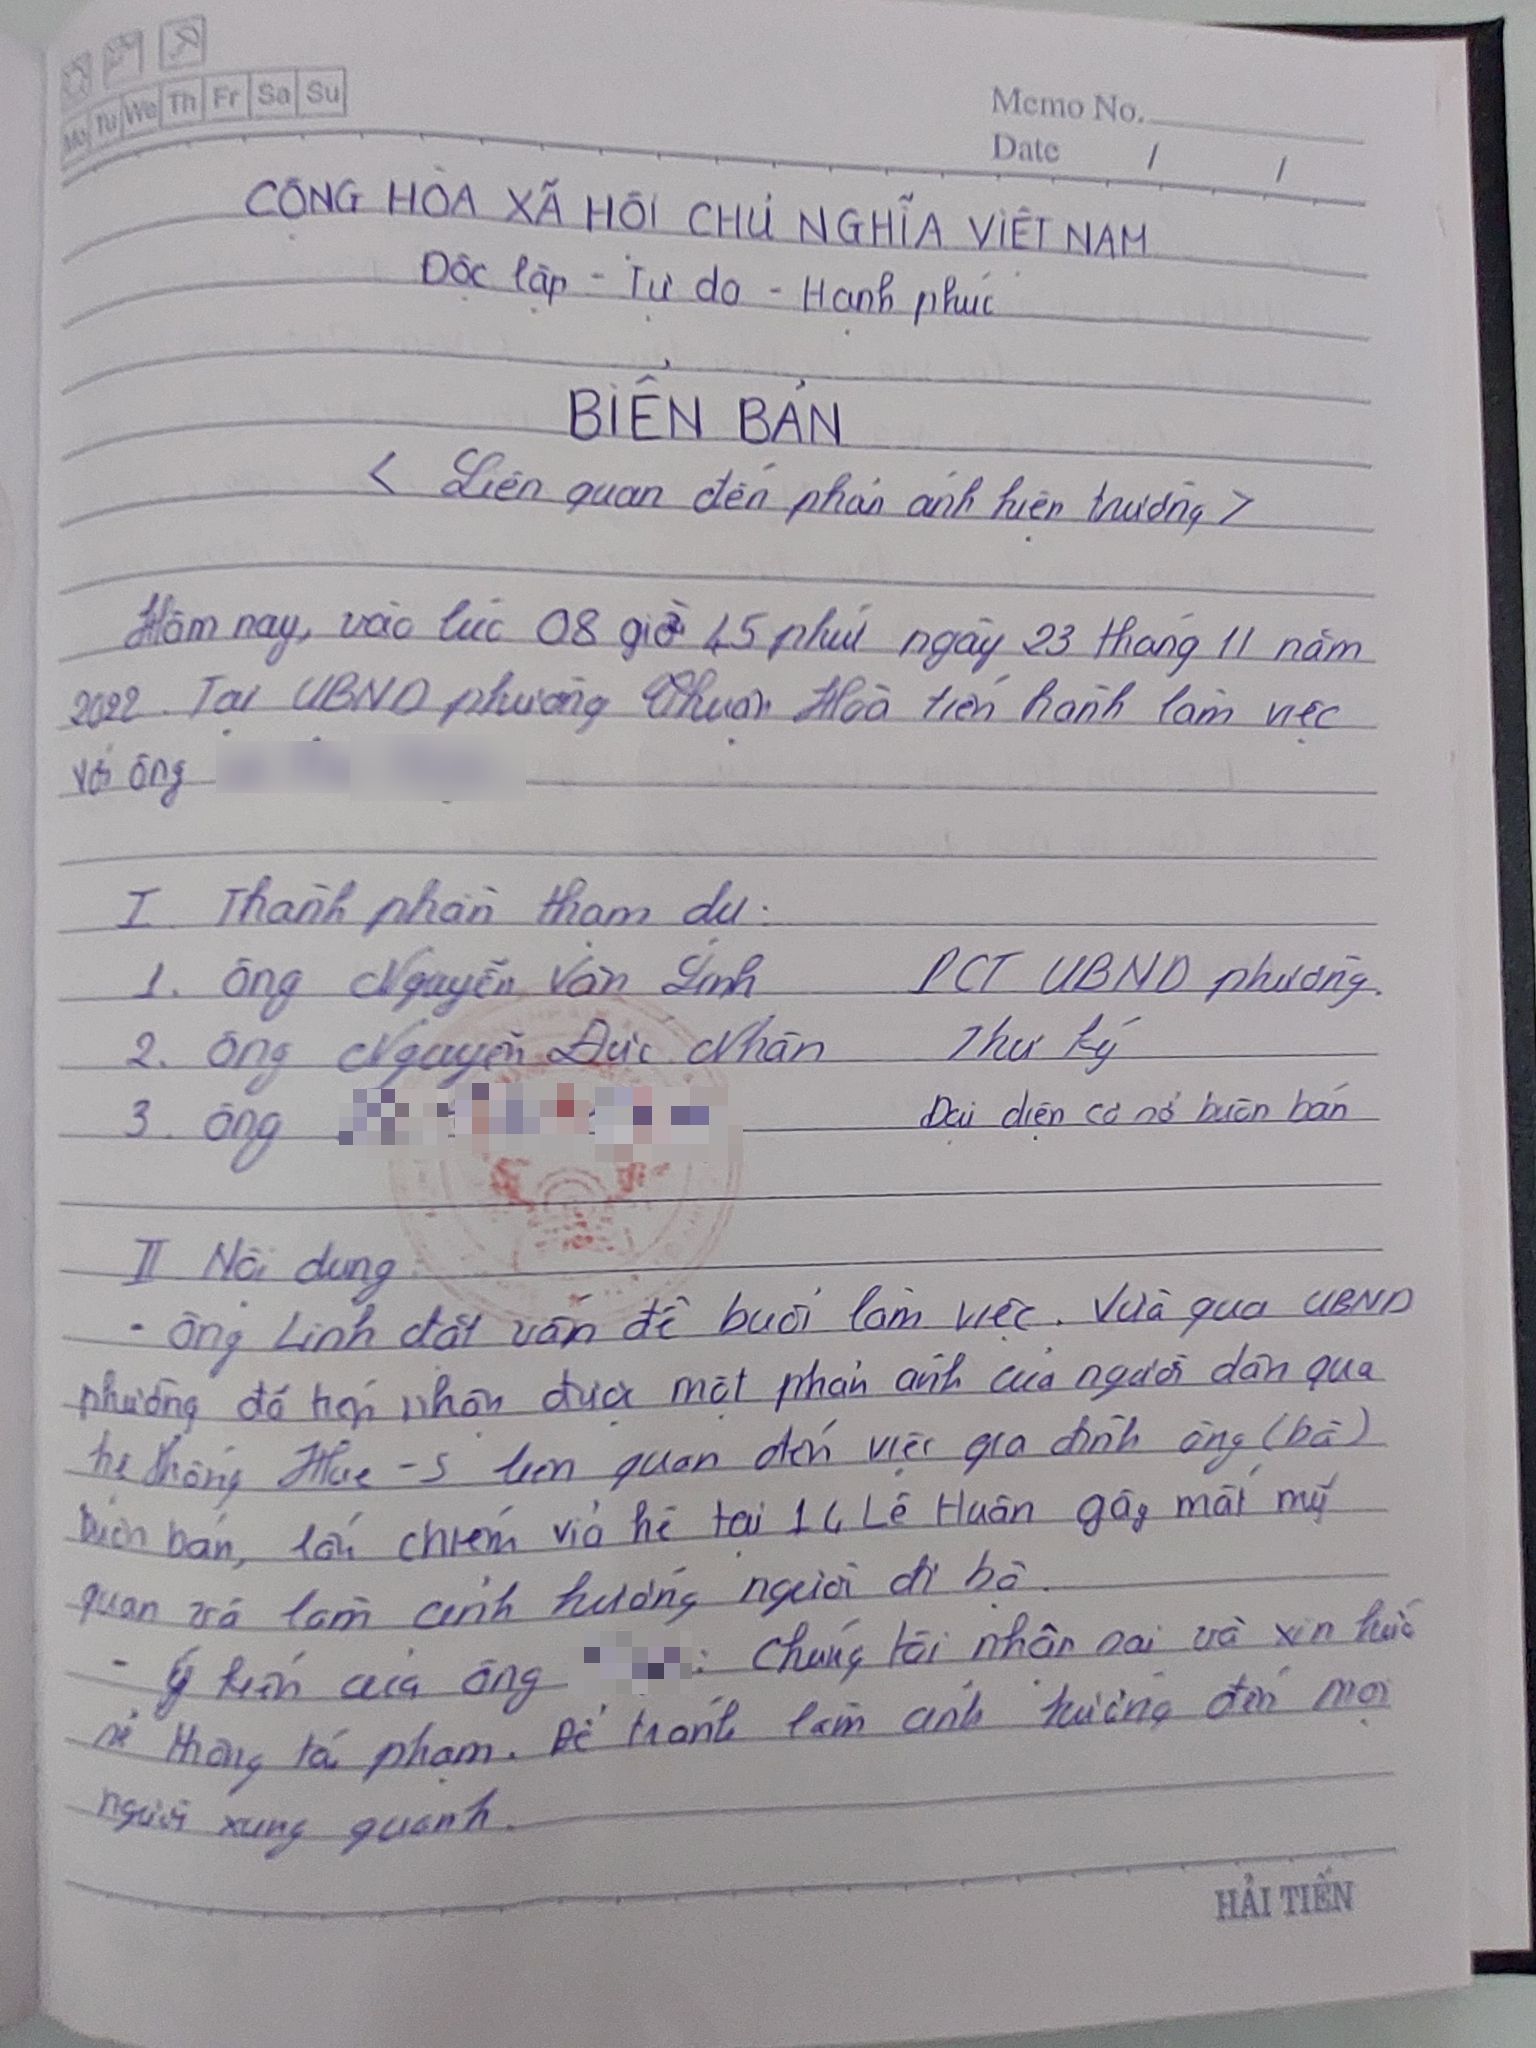 Mo Tu We Th Fr Sa Su
Memo No.
Date / /
CỘNG HÒA XÃ HỘI CHỦ NGHĨA VIỆT NAM
Độc lập - Tự do - Hạnh phúc
BIÊN BẢN
< Liên quan đến phản ánh hiện trường >
Hôm nay, vào lúc 08 giờ 45 phút ngày 23 tháng 11 năm
2022. Tại UBND phường Thuận Hoà tiến hành làm việc
với ông
I Thành phần tham dự:
1. Ông Nguyễn Văn Linh PCT UBND phường.
2. Ông Nguyễn Đức Nhân Thư ký
3. Ông Đại diện cơ sở buôn bán
II Nội dung
- Ông Linh đặt vấn đề buổi làm việc. Vừa qua UBND
phường đã tiếp nhận được một phản ánh của người dân qua
hệ thống Hue-S liên quan đến việc gia đình ông (bà)
buôn bán, lấn chiếm vỉa hè tại 14 Lê Huân gây mất mỹ
quan và làm ảnh hưởng người đi bộ.
- Ý kiến của ông : Chúng tôi nhận sai và xin hứa
sẽ không tái phạm. Để tránh làm ảnh hưởng đến mọi
người xung quanh.
HẢI TIẾN